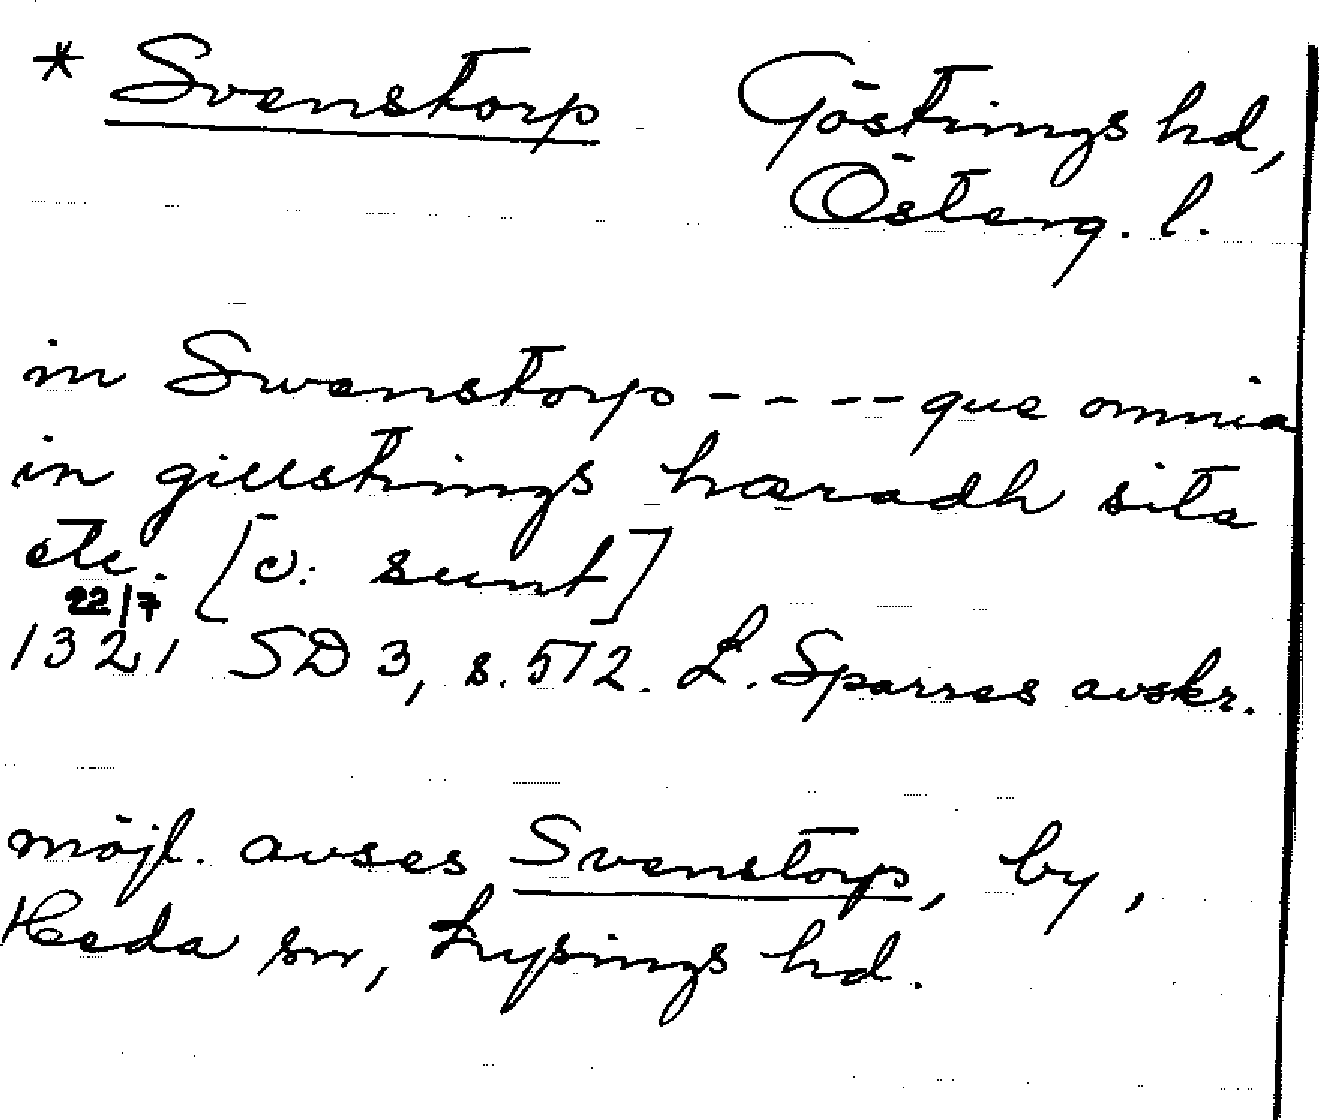 * Svenstorp Göstrings hd,
Österg. l.
in Swenstorp - - - - que omnia
in gillstrings hæradh sita
etc. [ö: sunt]
22/7
1321 SD 3, s. 512. L. Sparres avskr.
möjl. avses Svenstorp, by,
Heda sn, Lysings hd.